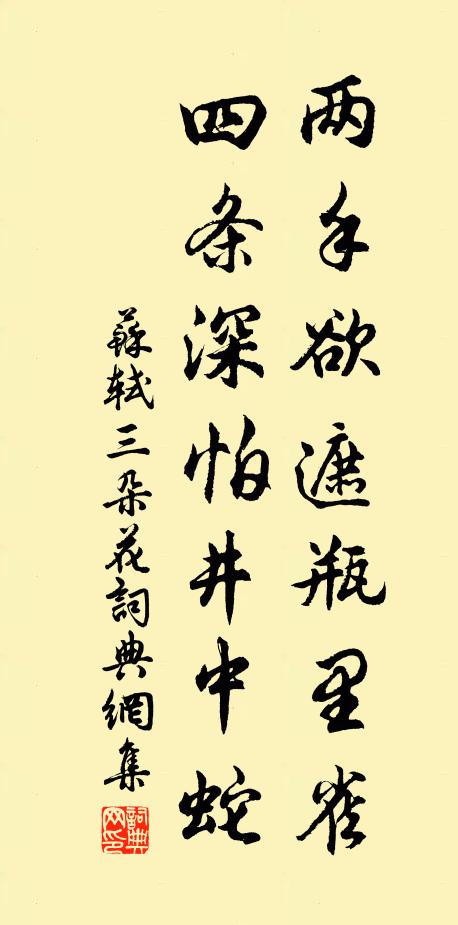 两手欲遮瓶里雀
四条深怕井中蛇
蘇軾三朵花詞典網集
詞典網印